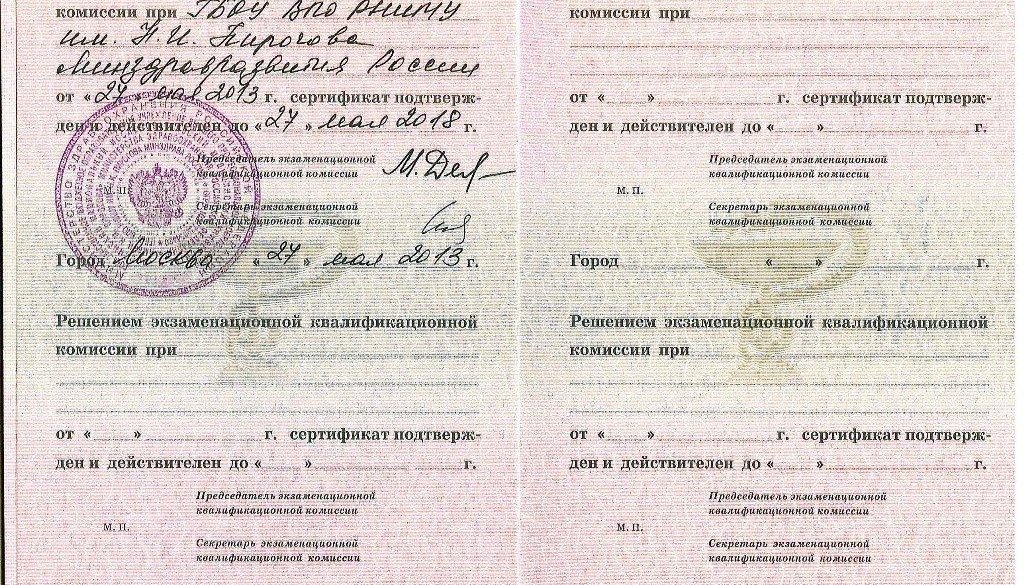 комиссии при ГБОУ ВПО РНИМУ
им. Н.И. Пирогова
Минздравразвития России
от «27» мая 2013 г. сертификат подтверж-
ден и действителен до «27» мая 2018 г.
Председатель экзаменационной
квалификационной комиссии
М. П.
Секретарь экзаменационной
квалификационной комиссии
Город Москва «27» мая 2013 г.
Решением экзаменационной квалификационной
комиссии при
от « » г. сертификат подтверж-
ден и действителен до « » г.
Председатель экзаменационной
квалификационной комиссии
М. П.
Секретарь экзаменационной
квалификационной комиссии
комиссии при
от « » г. сертификат подтверж-
ден и действителен до « » г.
Председатель экзаменационной
квалификационной комиссии
М. П.
Секретарь экзаменационной
квалификационной комиссии
Город « » г.
Решением экзаменационной квалификационной
комиссии при
от « » г. сертификат подтверж-
ден и действителен до « » г.
Председатель экзаменационной
квалификационной комиссии
М. П.
Секретарь экзаменационной
квалификационной комиссии